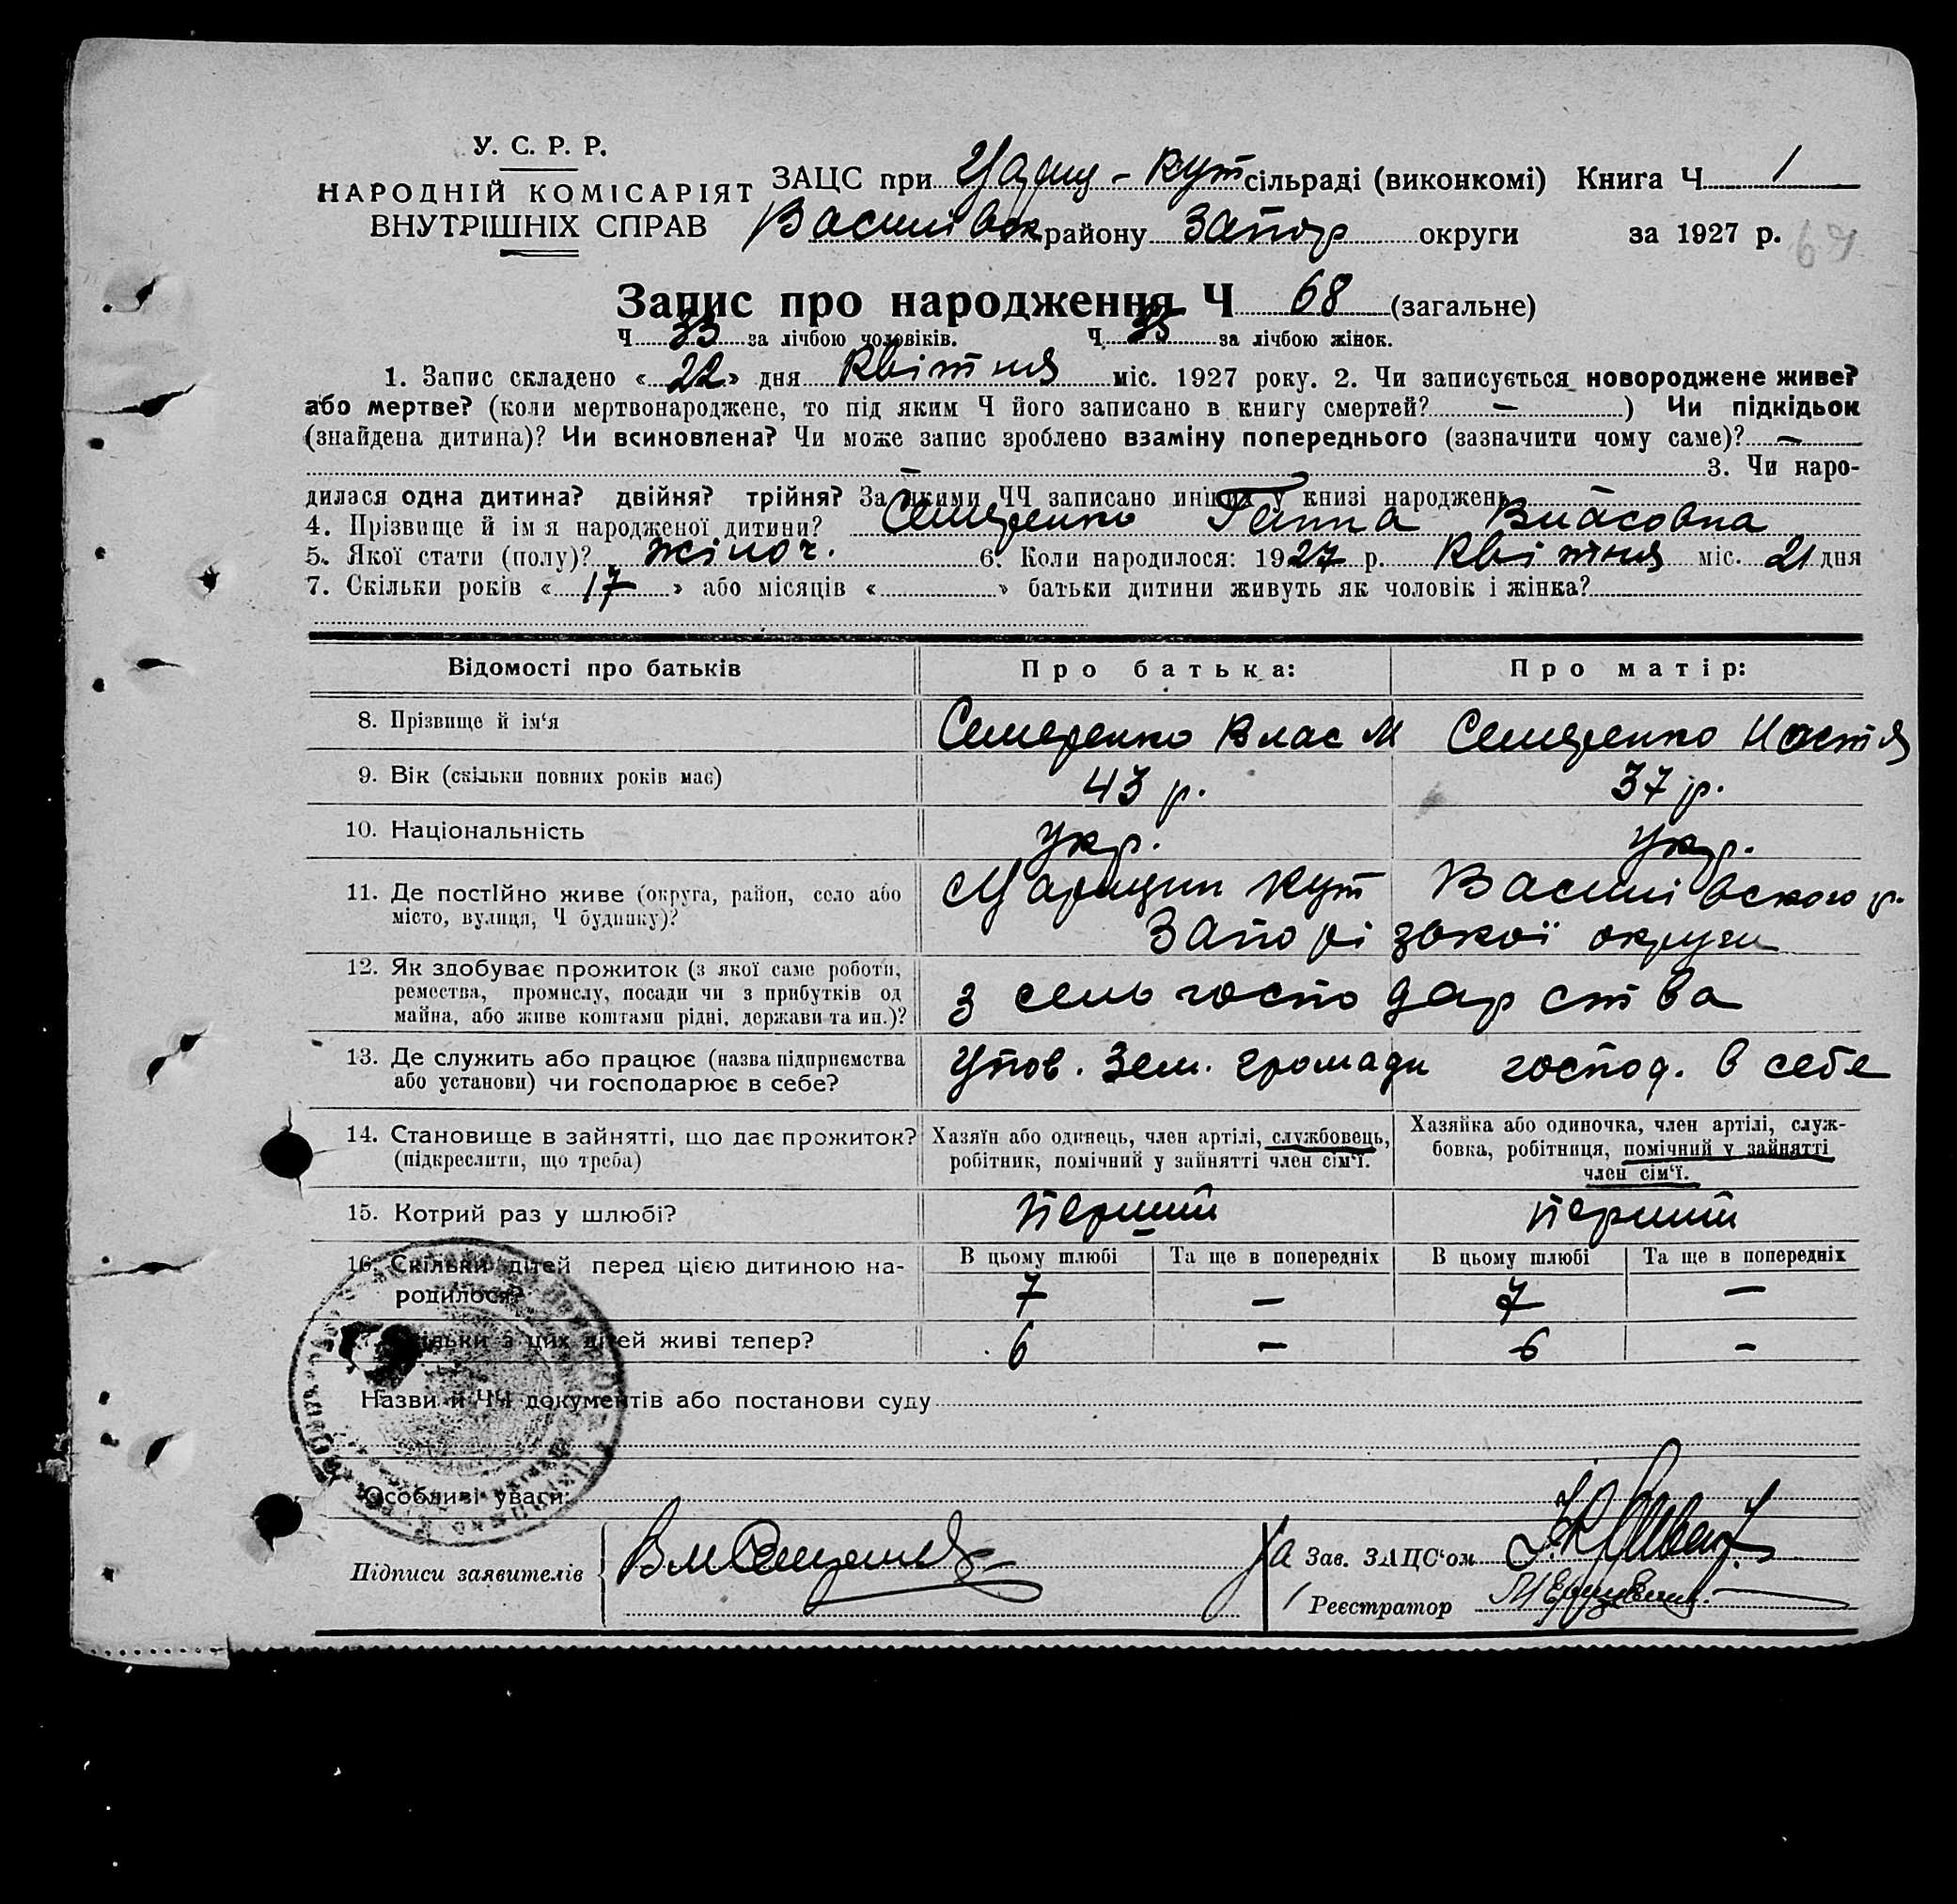 У. С. Р. Р.
НАРОДНІЙ КОМІСАРІЯТ
ВНУТРІШНІХ СПРАВ
ЗАЦС при Цариц-Кут сільраді (виконкомі) Книга Ч 1
Василівськ району Запор округи за 1927 р.
Запис про народження Ч 68 (загальне)
Ч 33 за лічбою чоловіків. Ч 35 за лічбою жінок.
1. Запис складено «22» дня Квітня міс. 1927 року. 2. Чи записується новороджене живе?
або мертве? (коли мертвонароджене, то під яким Ч його записано в книгу смертей? —) Чи підкідьок
(знайдена дитина)? Чи всиновлена? Чи може запис зроблено взаміну попереднього (зазначити чому саме)? —
— 3. Чи наро-
дилася одна дитина? двійня? трійня? За якими ЧЧ записано инших у книзі народжень —
4. Прізвище й імя народженої дитини? Семеренко Ганна Власовна
5. Якої стати (полу)? жіноч. 6. Коли народилося: 1927 р. Квітня міс. 21 дня
7. Скільки років «17» або місяців « » батьки дитини живуть як чоловік і жінка?
Відомості про батьків Про батька: Про матір:
8. Прізвище й ім‘я Семеренко Влас М Семеренко Настя
9. Вік (скільки повних років має) 43 р. 37 р.
10. Національність Укр. Укр.
11. Де постійно живе (округа, район, село або Царицин Кут Василівського р.
місто, вулиця, Ч будинку)? Запорізької округи
12. Як здобуває прожиток (з якої саме роботи,
ремества, промислу, посади чи з прибутків од з сельгосподарства
майна, або живе коштами рідні, держави та ин.)?
13. Де служить або працює (назва підприємства Упов. Зем. громади господ. в себе
або установи) чи господарює в себе?
14. Становище в зайнятті, що дає прожиток? Хазяїн або одинець, член артілі, службовець, Хазяйка або одиночка, член артілі, служ-
(підкреслити, що треба) робітник, помічний у зайнятті член сім‘ї. бовка, робітниця, помічний у зайнятті
член сім‘ї.
15. Котрий раз у шлюбі? Перший Перший
16. Скільки дітей перед цією дитиною на- В цьому шлюбі Та ще в попередніх В цьому шлюбі Та ще в попередніх
родилося? 7 — 7 —
17. Скільки з цих дітей живі тепер? 6 — 6 —
Назви й ЧЧ документів або постанови суду
Особливі уваги:
Підписи заявителів
За Зав. ЗАЦС‘ом
Реєстратор